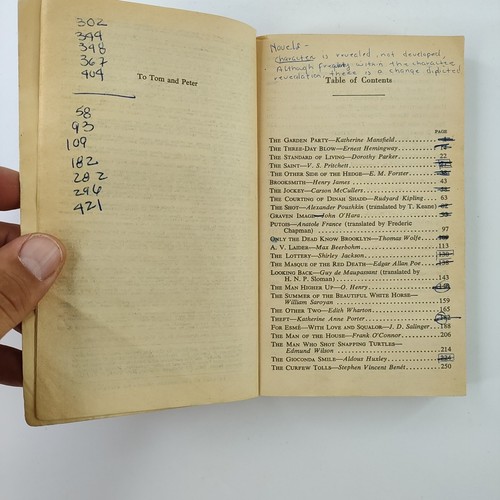 302
344
348
367
404
To Tom and Peter
58
93
109
182
282
296
421
Novels -
character is revealed, not developed,
Although within the character
revealation, there is a change depicted
Table of Contents
PAGE
THE GARDEN PARTY—Katherine Mansfield
THE THREE-DAY BLOW—Ernest Hemingway
THE STANDARD OF LIVING—Dorothy Parker 22
THE SAINT—V. S. Pritchett
THE OTHER SIDE OF THE HEDGE—E. M. Forster
BROOKSMITH—Henry James 43
THE JOCKEY—Carson McCullers
THE COURTING OF DINAH SHADD—Rudyard Kipling 63
THE SHOT—Alexander Poushkin (translated by T. Keane)
GRAVEN IMAGE—John O'Hara
PUTOIS—Anatole France (translated by Frederic
Chapman) 97
ONLY THE DEAD KNOW BROOKLYN—Thomas Wolfe
A. V. LAIDER—Max Beerbohm 113
THE LOTTERY—Shirley Jackson
THE MASQUE OF THE RED DEATH—Edgar Allan Poe
LOOKING BACK—Guy de Maupassant (translated by
H. N. P. Sloman) 143
THE MAN HIGHER UP—O. Henry
THE SUMMER OF THE BEAUTIFUL WHITE HORSE—
William Saroyan 159
THE OTHER TWO—Edith Wharton 165
THEFT—Katherine Anne Porter
FOR ESMÉ—WITH LOVE AND SQUALOR—J. D. Salinger 188
THE MAN OF THE HOUSE—Frank O'Connor 206
THE MAN WHO SHOT SNAPPING TURTLES—
Edmund Wilson 214
THE GIOCONDA SMILE—Aldous Huxley
THE CURFEW TOLLS—Stephen Vincent Benét 250